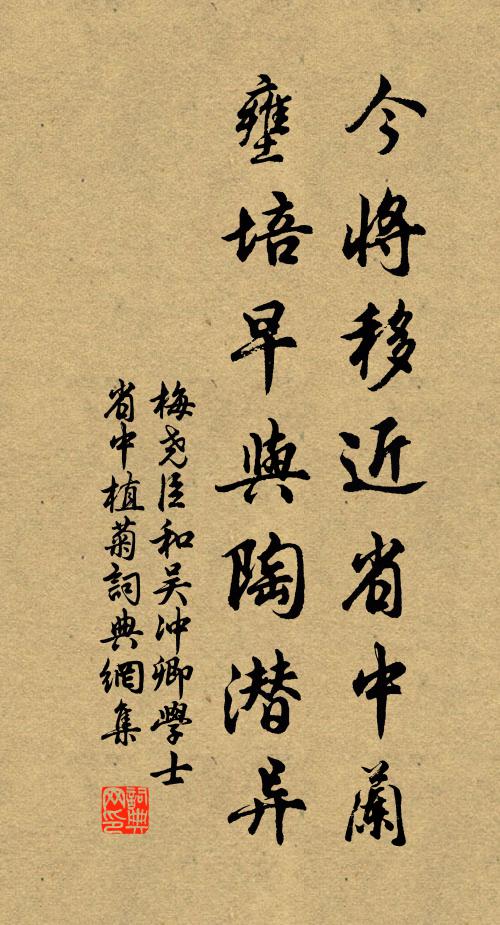 今將移近省中蘭
壅培早與陶潜异
梅尧臣和吴冲卿學士
省中植菊詞典網集
詞典網印